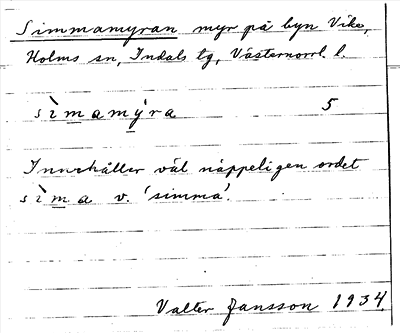 Simmamyran myr på byn Vike,
Holms sn, Indals tg, Västernorrl. l.
sìmamýra 5
Innehåller väl näppeligen ordet
sìma v. 'simma'.
Valter Jansson 1934.